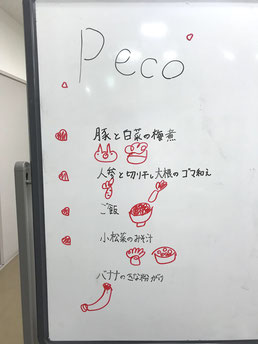 Peco
豚と白菜の梅煮
人参と切り干し大根のゴマ和え
ご飯
小松菜のみそ汁
バナナのきな粉がけ